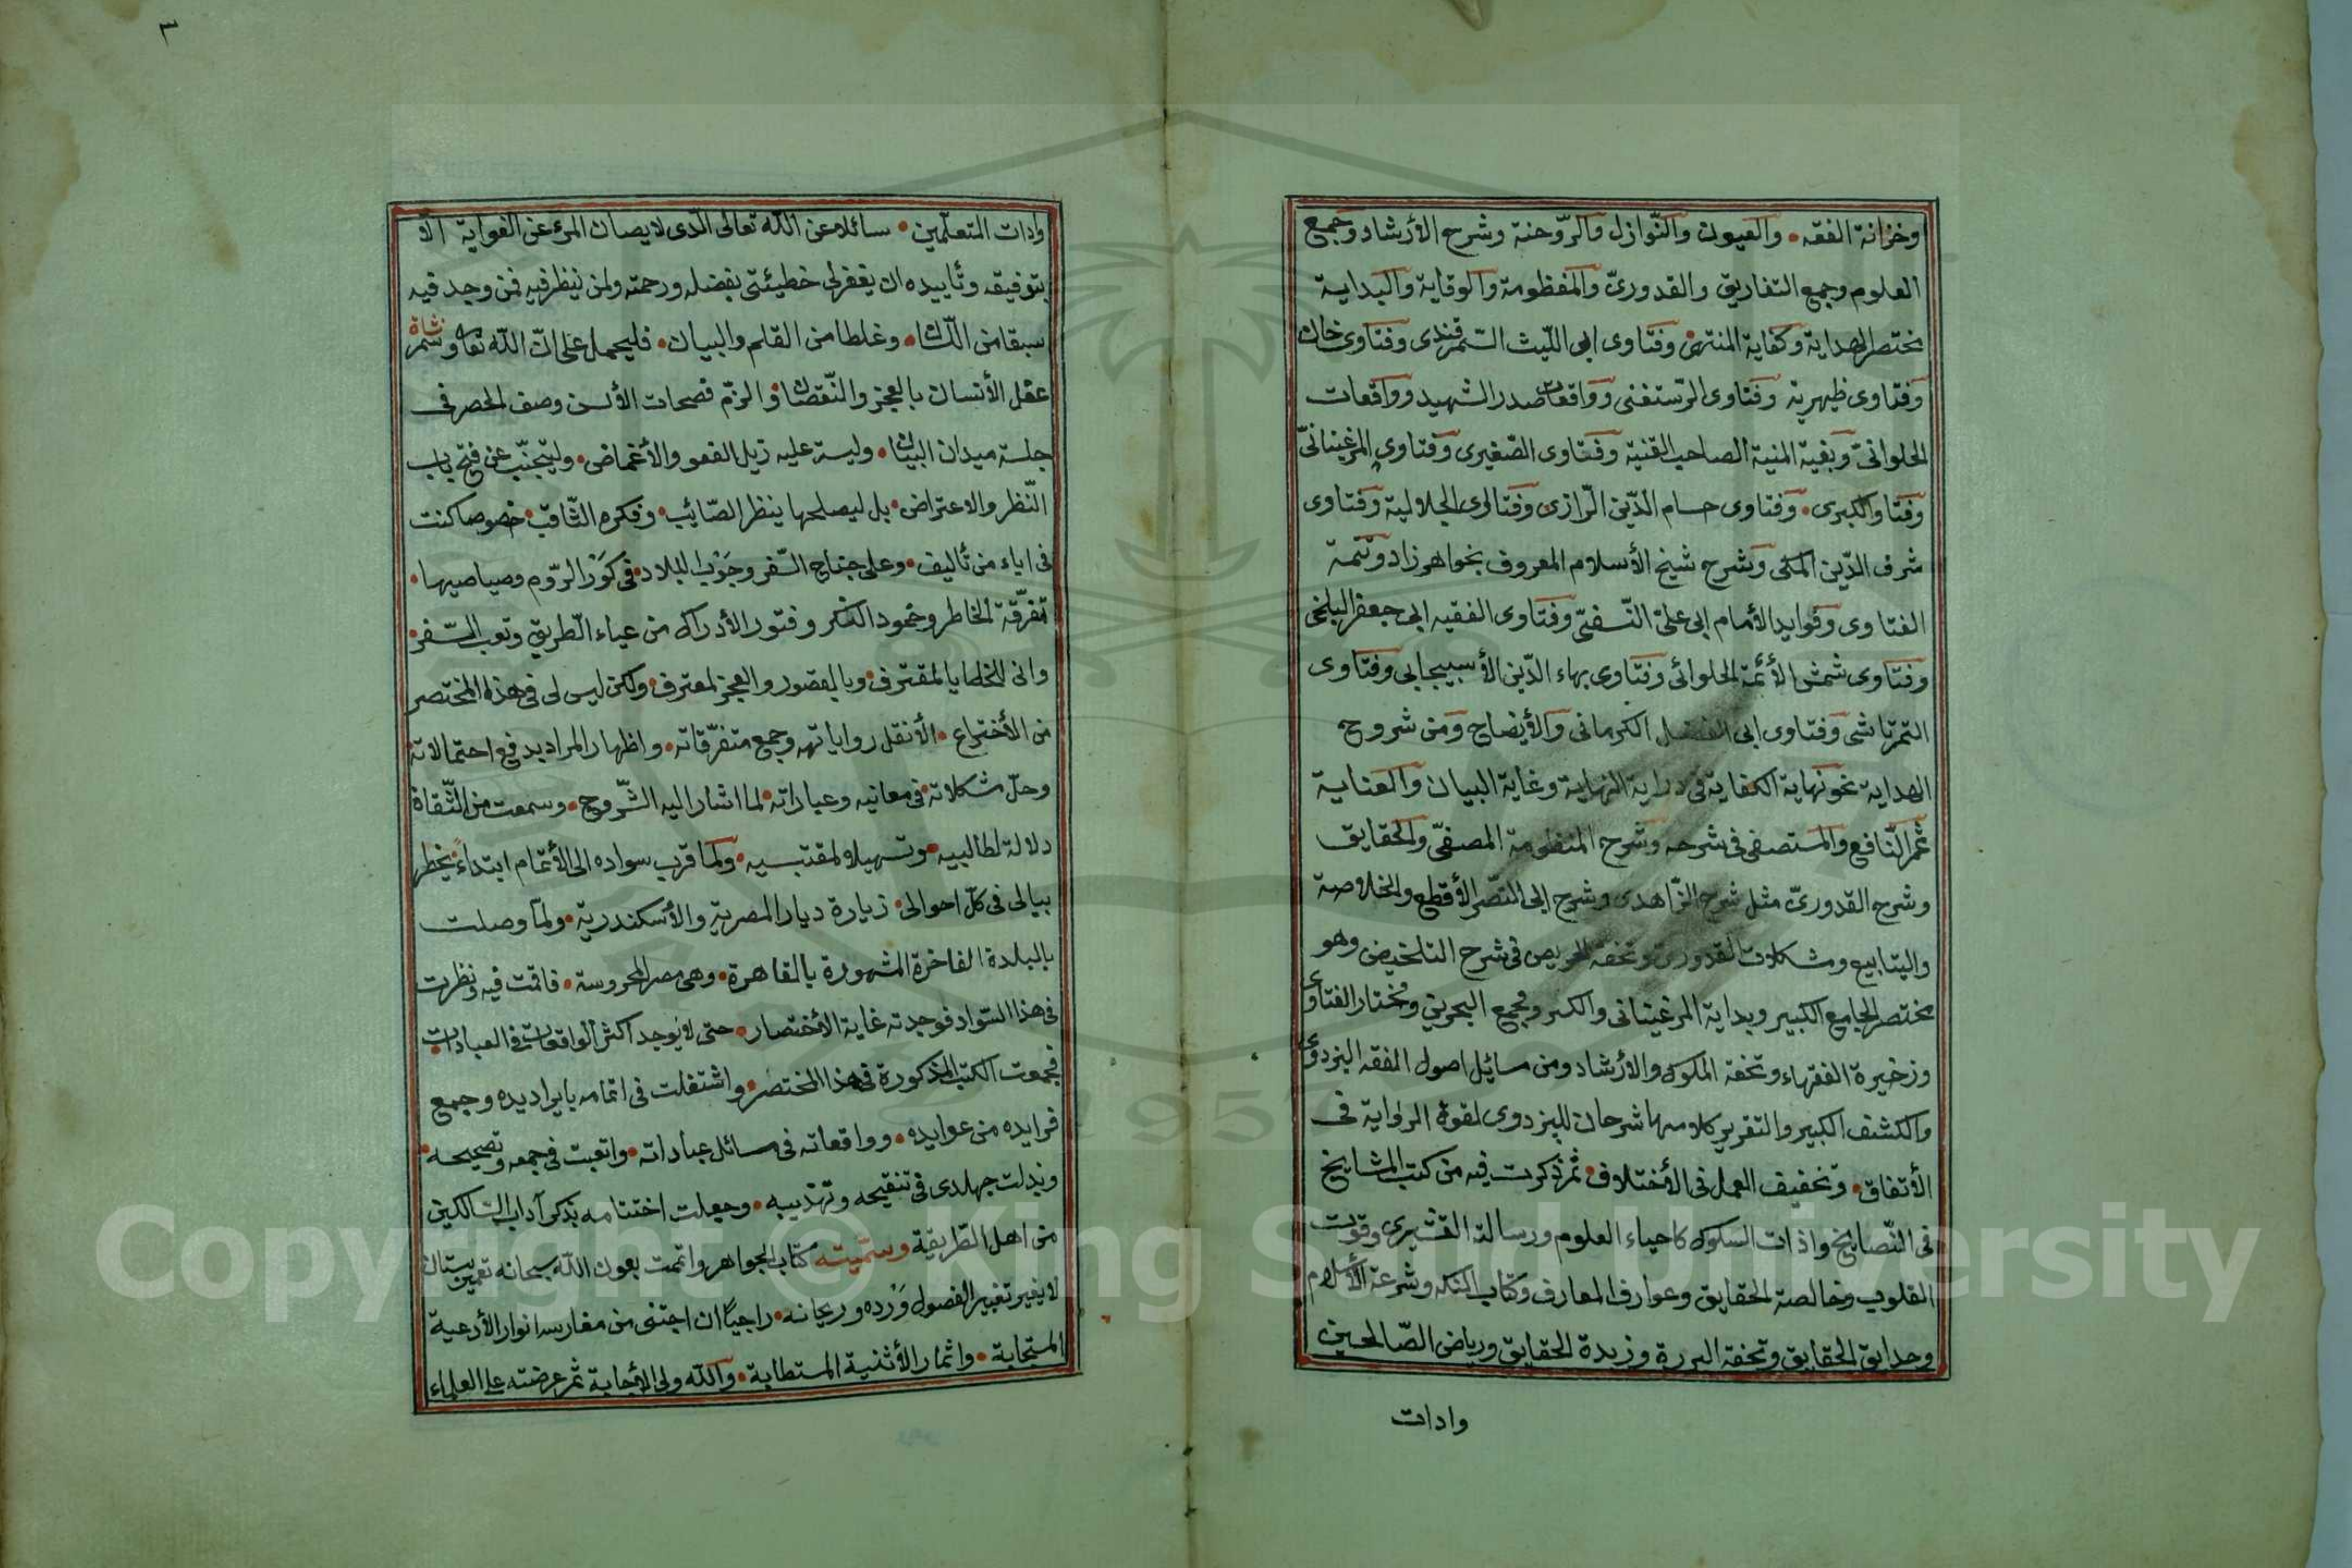 وخزانة الفقه • والعيون والنّوازل والرّوحنة وشرح الأرشاد وجمع
العلوم وجمع التفاريق والقدوريّ والمنظومة والوقاية والبداية
مختصر الهداية وكفاية المنتهى وفتاوى ابى اللّيث السّمرقندى وفتاوى خان
وفتاوى ظهيرية وفتاوى الرّستغفنى وواقعات صدر الشهيد وواقعات
الحلوانىّ وبغية المنية الصاحب القنية وفتاوى الصّغيرى وفتاوى المرغينانىّ
وفتاوالكبرى • وفتاوى حسام الدّين الرّازى وفتاوى الجلالية وفتاوى
شرف الدّين المكى وشرح شيخ الأسلام المعروف بخواهر زاد وتتمة
الفتاوى وفوايد الأمام ابى علىّ النّسفىّ وفتاوى الفقيه ابى جعفر البلخى
وفتاوى شمش الأئمّة الحلوائى وفتاوى بهاء الدّين الأسبيجابى وفتاوى
التمرتاشى وفتاوى ابى الفضل الكرمانى والأيضاح ومن شروح
الهداية نحو نهاية الكفاية فى دراية النهاية وغاية البيان والعناية
ثمّ النّافع والمستصفى فى شرحه وشرح المنظومة المصفّى والحقايق
وشرح القدورىّ مثل شرح الزّاهدى وشرح ابى النصّر الأقطع والخلاصة
والينابيع ومشكلات القدورى وتحفة الحريص فى شرح التلخيص وهو
مختصر الجامع الكبير وبداية المرغينانى والكنز ومجمع البحرين ومختار الفتاوى
وزخيرة الفقهاء وتحفة الملوك والأرشاد ومن مسائل اصول الفقه البزدوى
والكشف الكبير والتقرير كلامهما شرحان للبزدوى لقوة الرواية فى
الأتفاق • وتخفيف العمل فى الأختلاف • ثمّ ذكرت فيه من كتب المشايخ
فى النّصايح واذات السلوك كاحياء العلوم ورسالة القشيرى وقوت
القلوب وخالصة الحقايق وعوارف المعارف وكتاب النكه وشرعة الأسلام
وحدايق الحقايق وتحفة البررة وزبدة الحقايق ورياض الصّالحين
وادات
٣
وادات المتعلّمين • سائلا من الله تعالى الّذى لا يصان المرء عن الغواية الا
بتوفيقه وتأييده ان يغفر لى خطيئتى بفضله ورحمته ولمن ينظر فيه فمن وجد فيه
سبقا من اللّسان • وغلطا من القلم والبيان • فليحمل على انّ الله تعالى
عقل الأنسان بالعجز والنّقصان • والزّم فصحات الألسن وصف الحصر فى
جلسة ميدان البيان • وليستر عليه زيل العفو والأغماض • وليتجنّب عن فتح باب
النّظر والاعتراض • بل ليصلحها ينظر الصّايب • وفكره الثّاقب • خصوصا كنت
فى اياء من تأليف • وعلى جناح السّفر وجَوْب البلاد • فى كَوَر الرّوم وصياصيها •
تفرّقة الخاطر وخمود الفكر وفتور الأدراك من عياء الطّريق وتعب السّفر •
وانى للخطايا لمقترف • وبالقصور والعجز لمعترف • ولكن ليس لى فى هذا المختصر
من الأختراع • الأنقل رواياتهه وجمع متفرّقاته • واظهار المراد يدفع احتمالاته
وحلّ مشكلاته فى معانيه وعباراته • لما اشار اليه الشّروح • وسمعت من الثّقاة
دلالة لطالبيه • وتسهيلا لمقتبسيه • ولمّا قرب سواده الى الأتمام ابتداءً يخطر
ببالى فى كلّ احوالى • زيارة ديار المصرية والأسكندرية • ولمّا وصلت
بالبلدة الفاخرة المشهورة بالقاهرة • وهى مصر المحروسة • فاقمت فيه ونظرت
فى هذا السّواد فوجدته غاية الأختصار • حتى لا يوجد اكثر الواقعات فى العبادات •
فجمعت الكتب المذكورة فى هذا المختصر • واشتغلت فى اتمامه بايراد يده وجمع
فرايده من عوايده • وواقعاته فى مسائل عباداته • واتعبت فى جمعه وتصحيحه •
وبذلت جهلدى فى تنقيحه وتهذيبه • وجعلت اختتامه بذكر آداب السّالكين
من اهل الطّريقة وسمّيته كتاب الجواهر واتممت بعون الله سبحانه تعمير بستان
لا يغير تغيير الفصول وَرْده وريحانه • راجيًا ان اجتنى من مغارسه انوار الأدعية
المستجابة • واثمار الأثنية المستطابة • والله ولى الأجابة ثمّ عرضته على العلماء
Copyright © King Saud University
1957